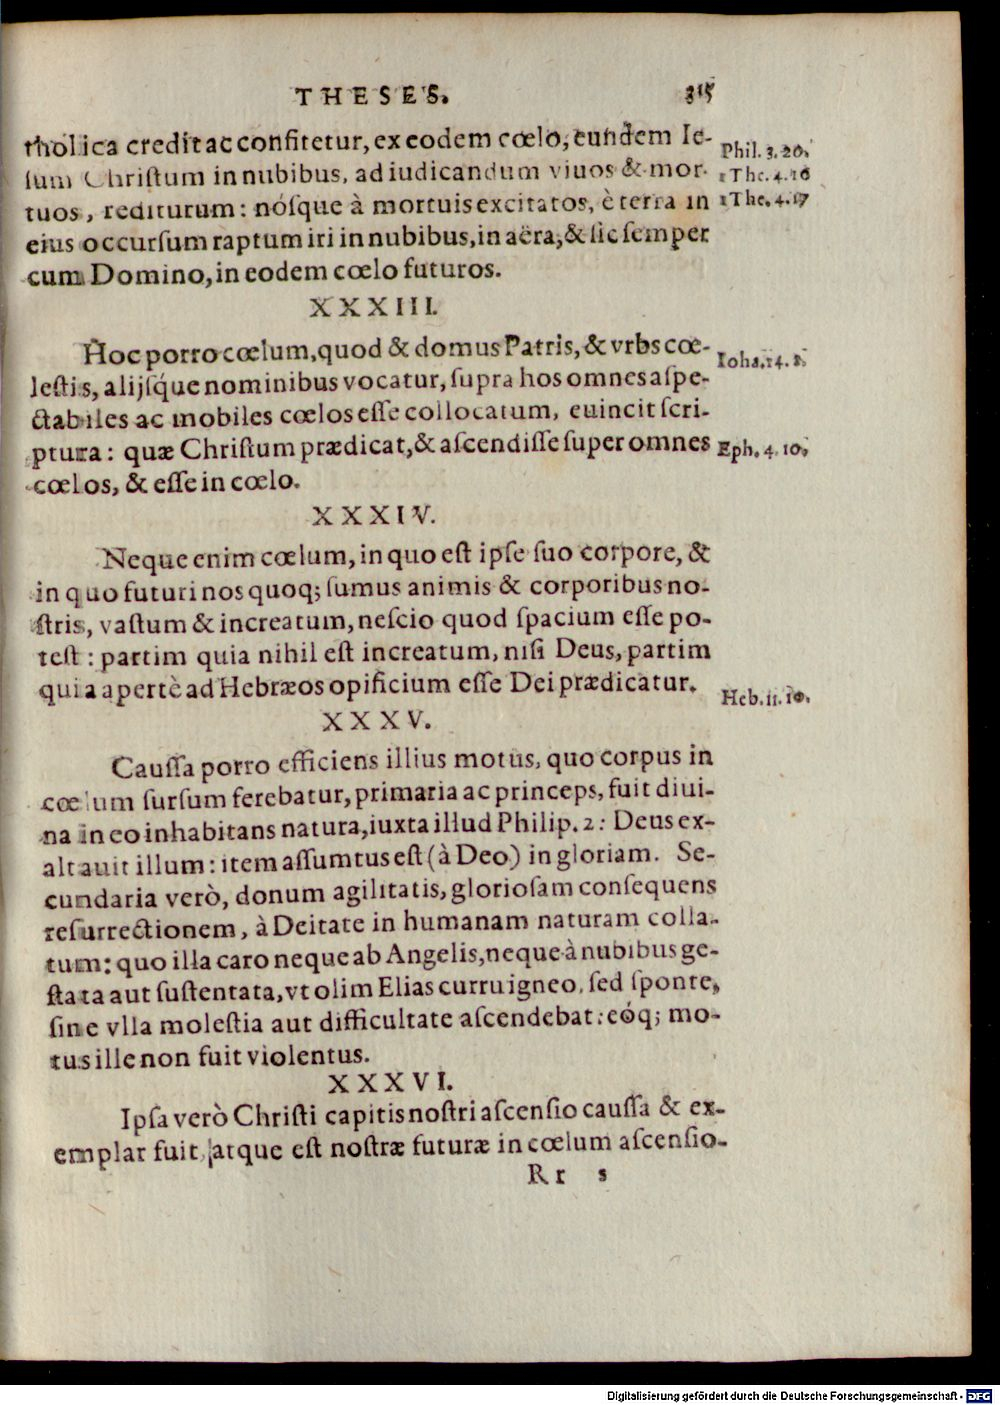 THESES. 315
tholica credit ac confitetur, ex eodem cœlo, eundem Ie-
sum Christum in nubibus, ad iudicandum viuos & mor- Phil. 3. 20.
tuos, rediturum: nósque à mortuis excitatos, è terra in 1 The. 4. 16
eius occursum raptum iri in nubibus, in aëra, & sic semper 1 The. 4. 17
cum Domino, in eodem cœlo futuros.
XXXIII.
Hoc porro cœlum, quod & domus Patris, & vrbs cœ- Ioha. 14. 2.
lestis, alijsq́ue nominibus vocatur, supra hos omnes aspe-
ctabiles ac mobiles cœlos esse collocatum, euincit scri-
ptura: quæ Christum prædicat, & ascendisse super omnes Eph. 4. 10.
cœlos, & esse in cœlo.
XXXIV.
Neque enim cœlum, in quo est ipse suo corpore, &
in quo futuri nos quoq; sumus animis & corporibus no-
stris, vastum & increatum, nescio quod spacium esse po-
test: partim quia nihil est increatum, nisi Deus, partim
quia apertè ad Hebræos opificium esse Dei prædicatur. Heb. 11. 10.
XXXV.
Caussa porro efficiens illius motus, quo corpus in
cœlum sursum ferebatur, primaria ac princeps, fuit diui-
na in eo inhabitans natura, iuxta illud Philip. 2: Deus ex-
altauit illum: item assumtus est (à Deo) in gloriam. Se-
cundaria verò, donum agilitatis, gloriosam consequens
resurrectionem, à Deitate in humanam naturam colla-
tum: quo illa caro neque ab Angelis, neque à nubibus ge-
stata aut sustentata, vt olim Elias curru igneo, sed sponte,
sine vlla molestia aut difficultate ascendebat: eóq; mo-
tus ille non fuit violentus.
XXXVI.
Ipsa verò Christi capitis nostri ascensio caussa & ex-
emplar fuit, atque est nostræ futuræ in cœlum ascensio-
Rr s
Digitalisierung gefördert durch die Deutsche Forschungsgemeinschaft - DFG